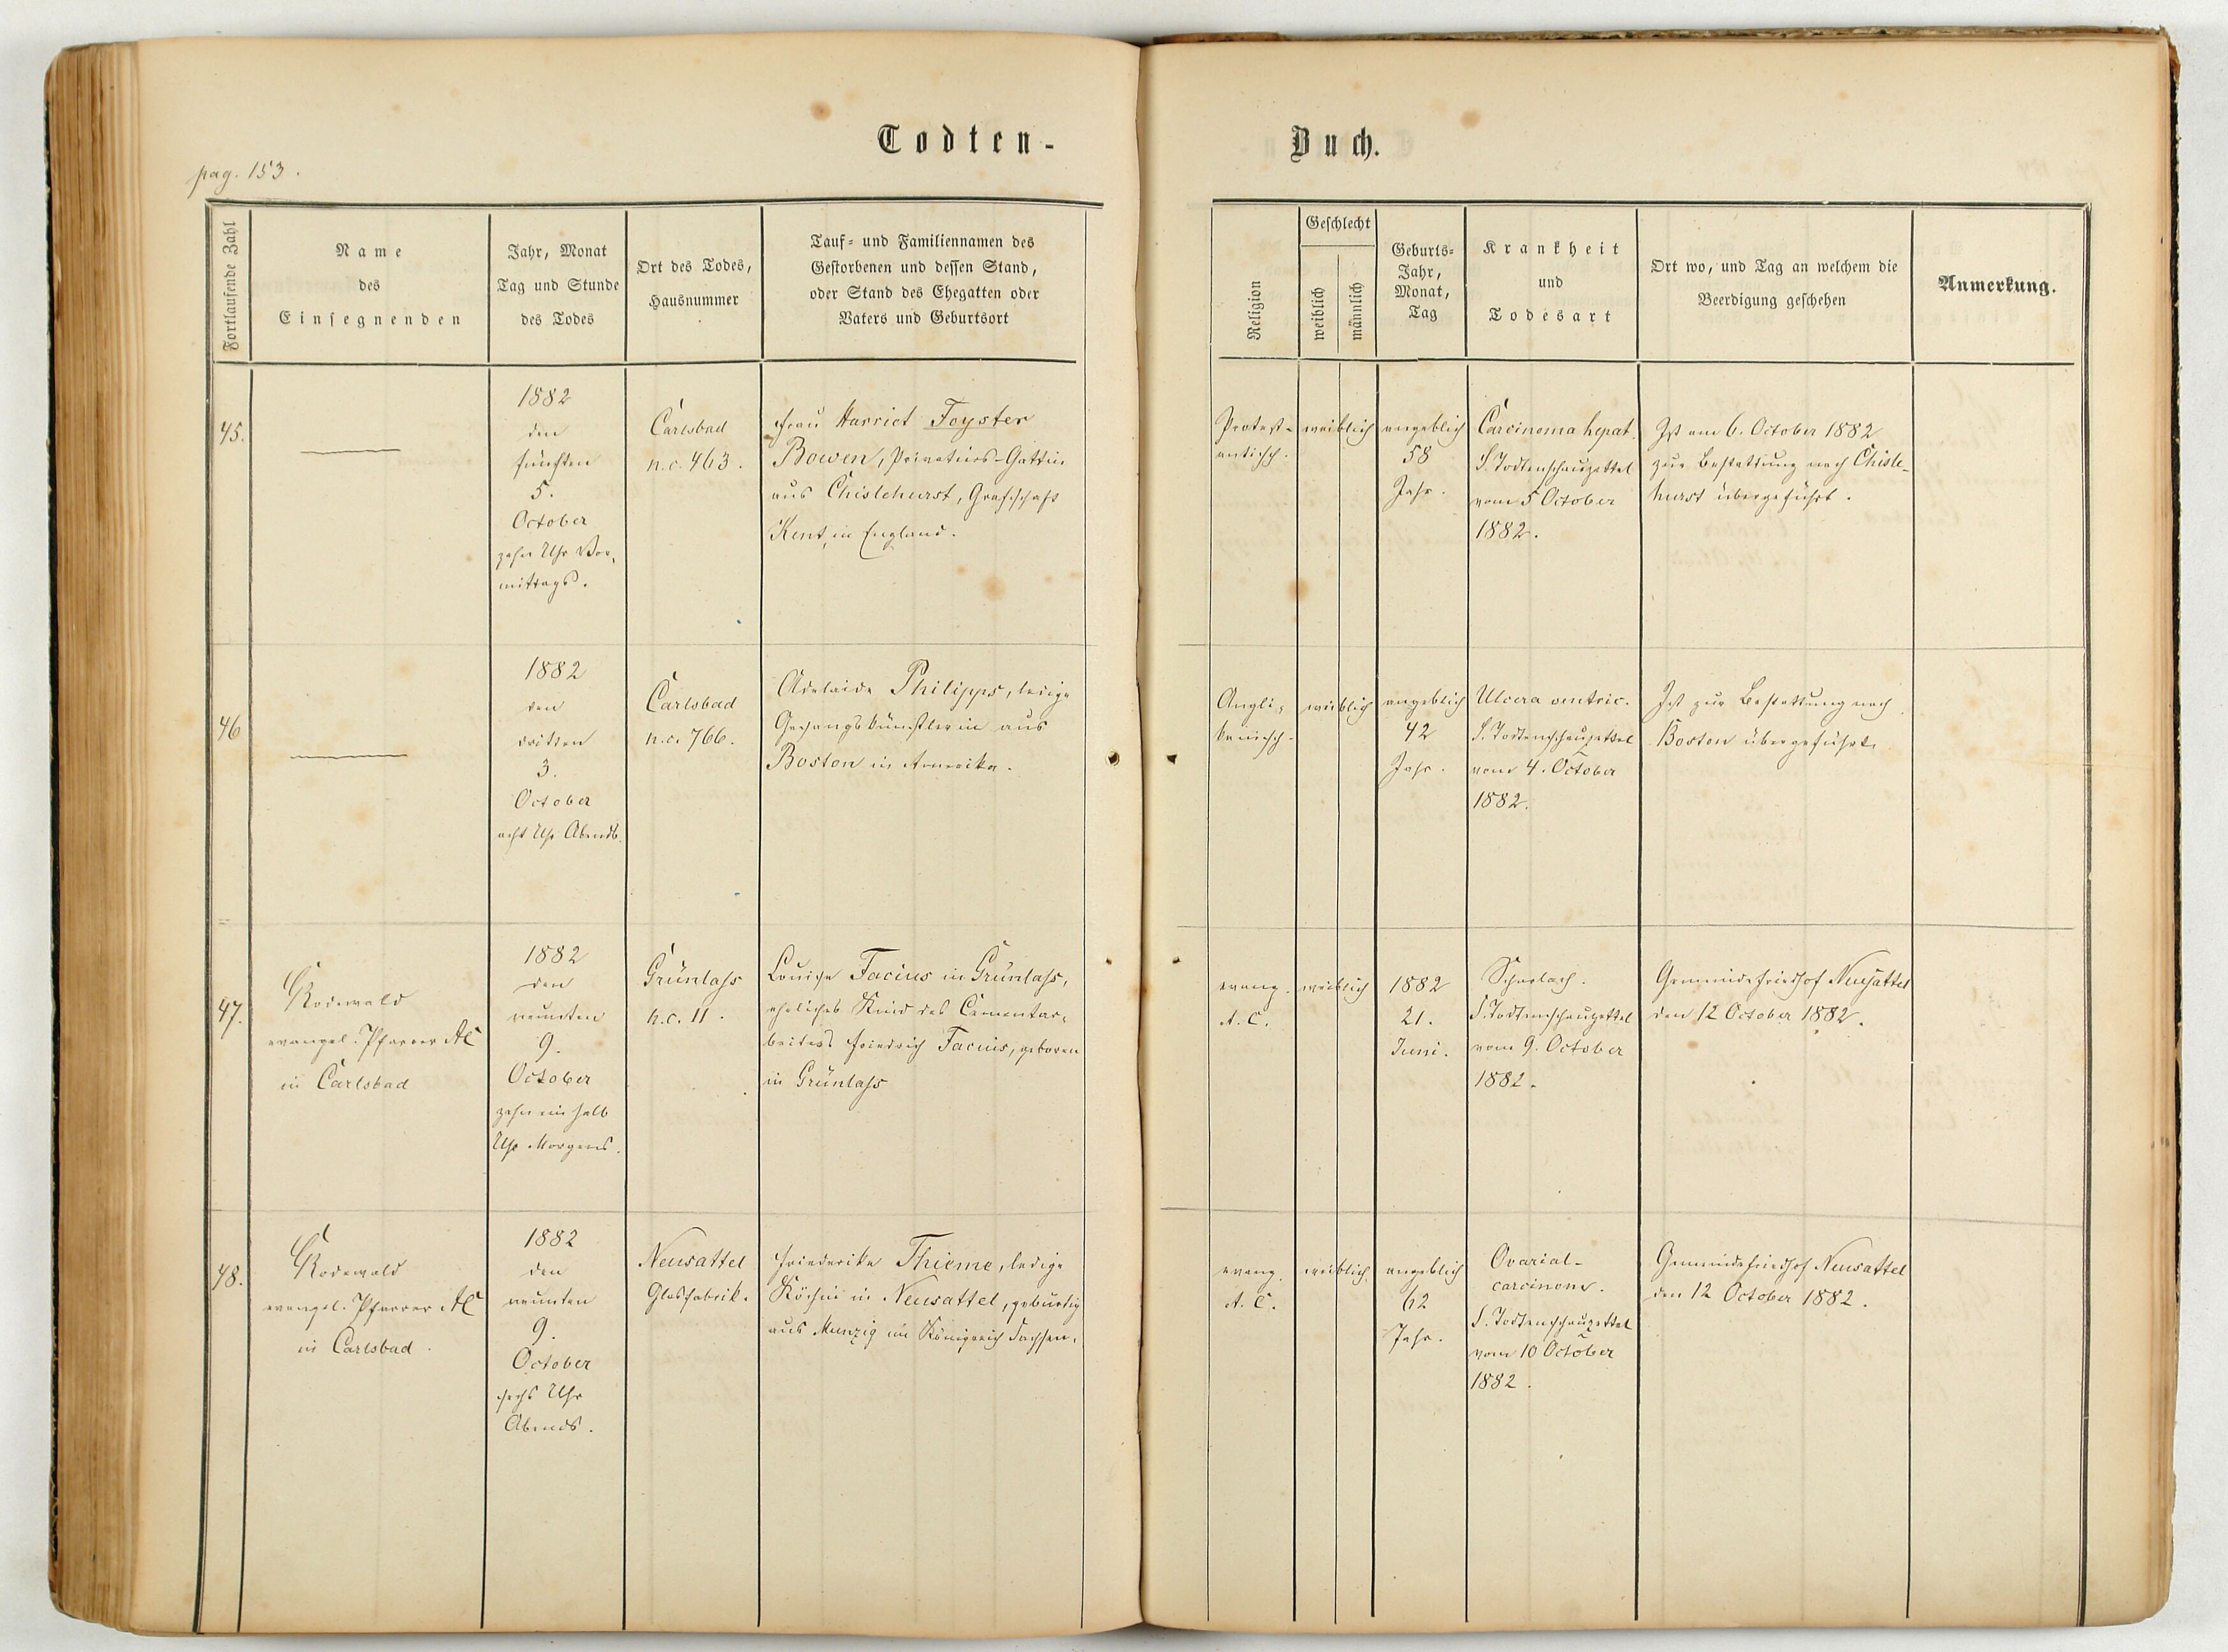 Todten-
Buch.
pag. 153.
Fortlaufende Zahl
Name
des
Einsegnenden
Jahr, Monat
Tag und Stunde
des Todes
Ort des Todes,
Hausnummer
Tauf- und Familiennamen des
Gestorbenen und dessen Stand,
oder Stand des Ehegatten oder
Vaters und Geburtsort
Religion
Geschlecht
weiblich
männlich
Geburts-
Jahr,
Monat,
Tag
Krankheit
und
Todesart
Ort wo, und Tag an welchem die
Beerdigung geschehen
Anmerkung.
45.
1882
den
fünften
5.
October
zehn Uhr Vor-
mittags.
Carlsbad
n.c. 463.
Frau Harriet Foyster
Bowen, Privatiers-Gattin
aus Chislehurst, Grafschaft
Kent, in England.
Protest-
antisch.
weiblich
angeblich
58
Jahr.
Carcinoma hepat.
S. Todtenschauzettel
vom 5 October
1882.
Ist am 6. October 1882
zur Bestattung nach Chisle-
hurst übergeführt.
46
1882
den
dritten
3.
October
acht Uhr Abends.
Carlsbad
n.c. 766.
Adelaide Philipps, ledige
Gesangskünstlerin aus
Boston in Amerika.
Angli-
kanisch.
weiblich
angeblich
42
Jahr.
Ulcera ventric.
S. Todtenschauzettel
vom 4. October
1882.
Ist zur Bestattung nach
Boston übergeführt.
47.
Rodewald
evangel. Pfarrer AC
in Carlsbad
1882
den
neunten
9.
October
zehn ein halb
Uhr Morgens.
Grünlass
n.c. 11.
Louise Facius in Grünlass,
eheliches Kind des Cementar-
beiters Friedrich Facius, geboren
in Grünlass
evang.
A. C.
weiblich
1882
21.
Juni.
Scharlach.
S. Todtenschauzettel
vom 9. October
1882.
Gemeindefriedhof Neusattel
den 12 October 1882.
48.
Rodewald
evangel. Pfarrer AC
in Carlsbad.
1882
den
neunten
9.
October
sechs Uhr
Abends.
Neusattel
Glasfabrik.
Friederike Thieme, ledige
Köchin in Neusattel, gebürtig
aus Munzig im Königreich Sachsen.
evang.
A. C.
weiblich
angeblich
62
Jahr.
Ovarial-
carcinom.
S. Todtenschauzettel
vom 10 October
1882.
Gemeindefriedhof Neusattel
den 12 October 1882.